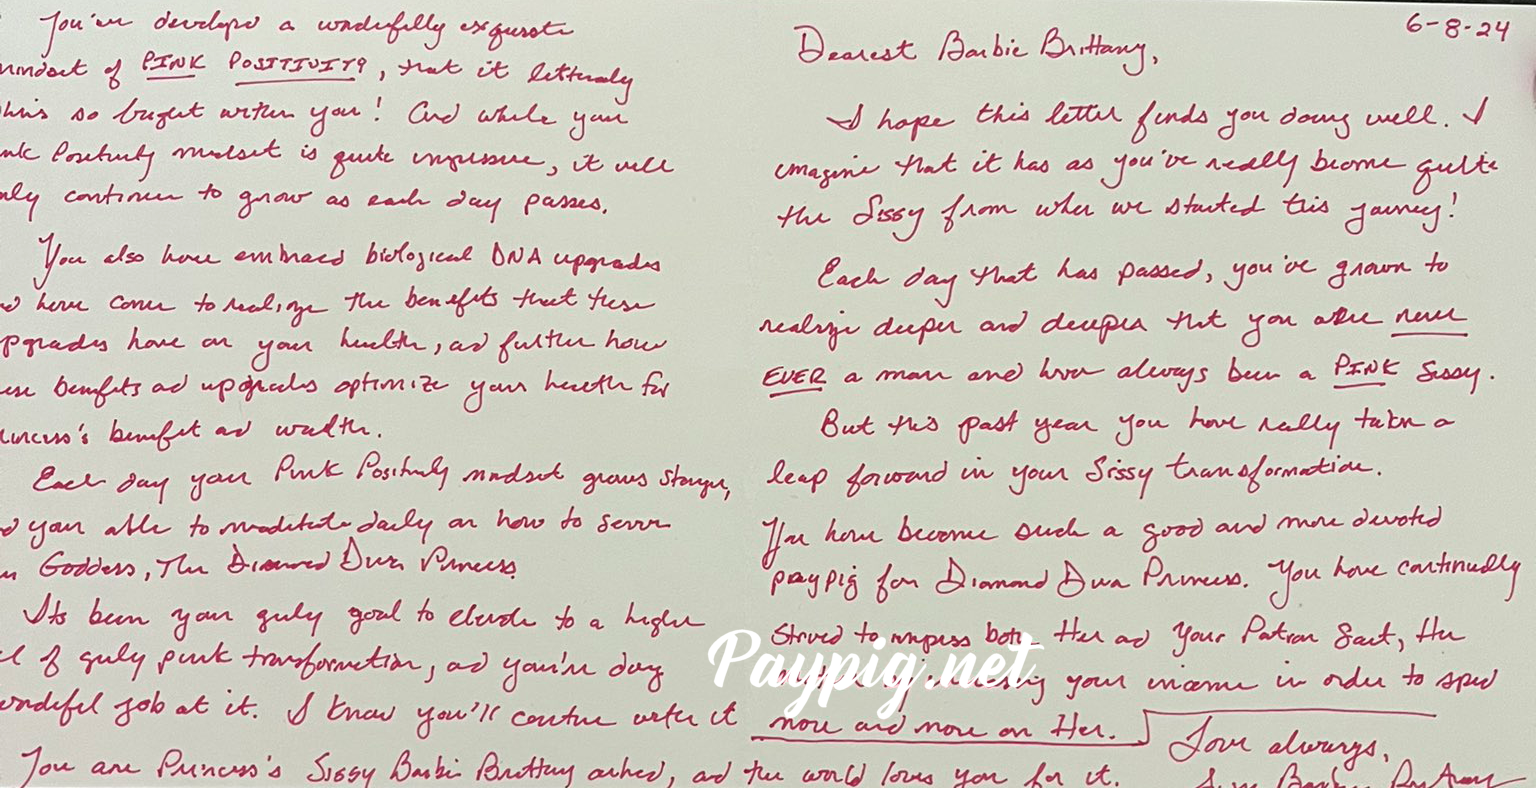 6-8-24
Dearest Barbie Brittany,
I hope this letter finds you doing well. I
imagine that it has as you've really become quite
the Sissy from when we started this journey!
Each day that has passed, you've grown to
realize deeper and deeper that you are never
EVER a man and have always been a PINK Sissy.
But this past year you have really taken a
leap forward in your Sissy transformation.
You have become such a good and more devoted
paypig for Diamond Diva Princess. You have continually
strived to impress both Her and Your Patron Saint, Her
your income in order to spend
more and more on Her.
You've developed a wonderfully exquisite
mindset of PINK POSITIVITY, that it litteraly
so bright within you! And while your
Positivity mindset is quite impressive, it will
continue to grow as each day passes.
You also have embraced biological DNA upgrades
have come to realize the benefits that these
upgrades have on your health, and further how
benefits and upgrades optimize your health for
Princess's benefit and wealth.
Each day your Pink Positivity mindset grows stronger,
your able to meditate daily on how to serve
Goddess, The Diamond Diva Princess.
Its been your girly goal to elevate to a higher
of girly pink transformation, and you're doing
wonderful job at it. I know you'll continue with it
You are Princess's Sissy Barbie Brittany and the world loves you for it.
Love always,
Sissy Barbie Brittany
Paypig.net